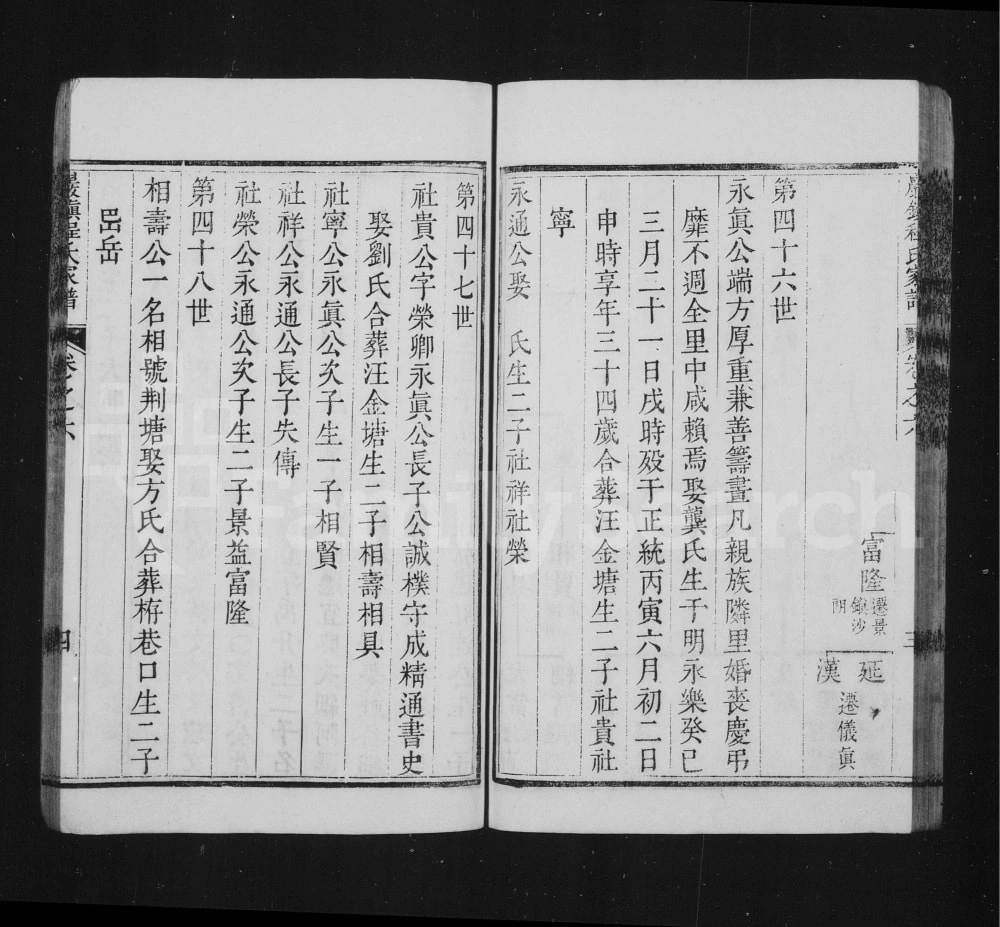 富隆
遷景
鎮沙
明
延漢
遷儀眞
第四十六世
永眞公端方厚重兼善籌畫凡親族隣里婚喪慶弔
靡不週全里中咸賴焉娶龔氏生于明永樂癸巳
三月二十一日戌時歿于正統丙寅六月初二日
申時享年三十四歲合葬汪金塘生二子社貴社
寧
永通公娶 氏生二子社祥社榮
第四十七世
社貴公字榮卿永眞公長子公誠樸守成精通書史
娶劉氏合葬汪金塘生二子相壽相具
社寧公永眞公次子生一子相賢
社祥公永通公長子失傳
社榮公永通公次子生二子景益富隆
第四十八世
相壽公一名相號荆塘娶方氏合葬栫巷口生二子
岊岳
巖鎭程氏家譜
卷之六
四
FamilySearch